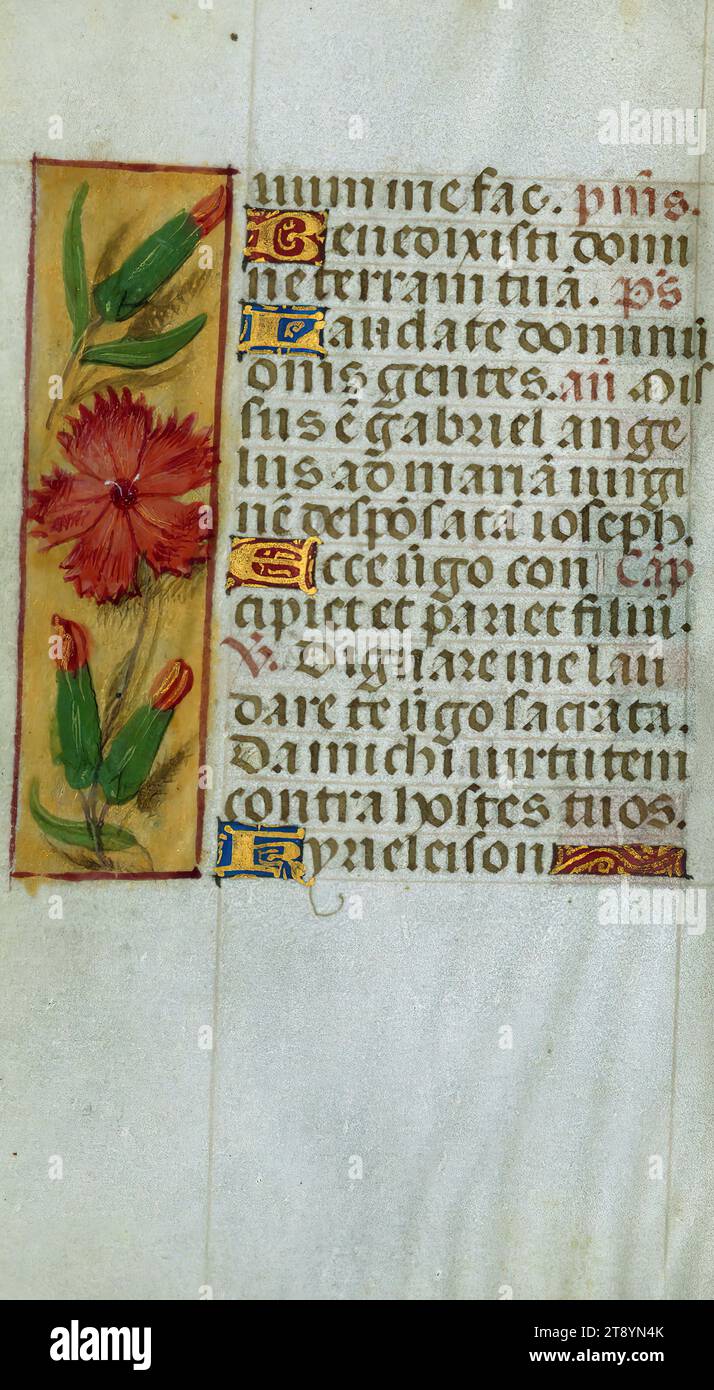 num me fac. p̄m̄s.
Benedixisti domi
ne terram tuā. p̄s
Laudate dominū
om̄s gentes. an̄ Mis
sus ē gabriel ange
lus ad mariā uirgi
nē despōsatā ioseph.
Ecce ūgo con Cāp
cipiet et pariet filiū.
V. Dignare me lau
dare te ūgo sacrata.
Da michi uirtutem
contra hostes tuos.
Kyrieleison
alamy
Image ID: 2T8YN4K
www.alamy.com